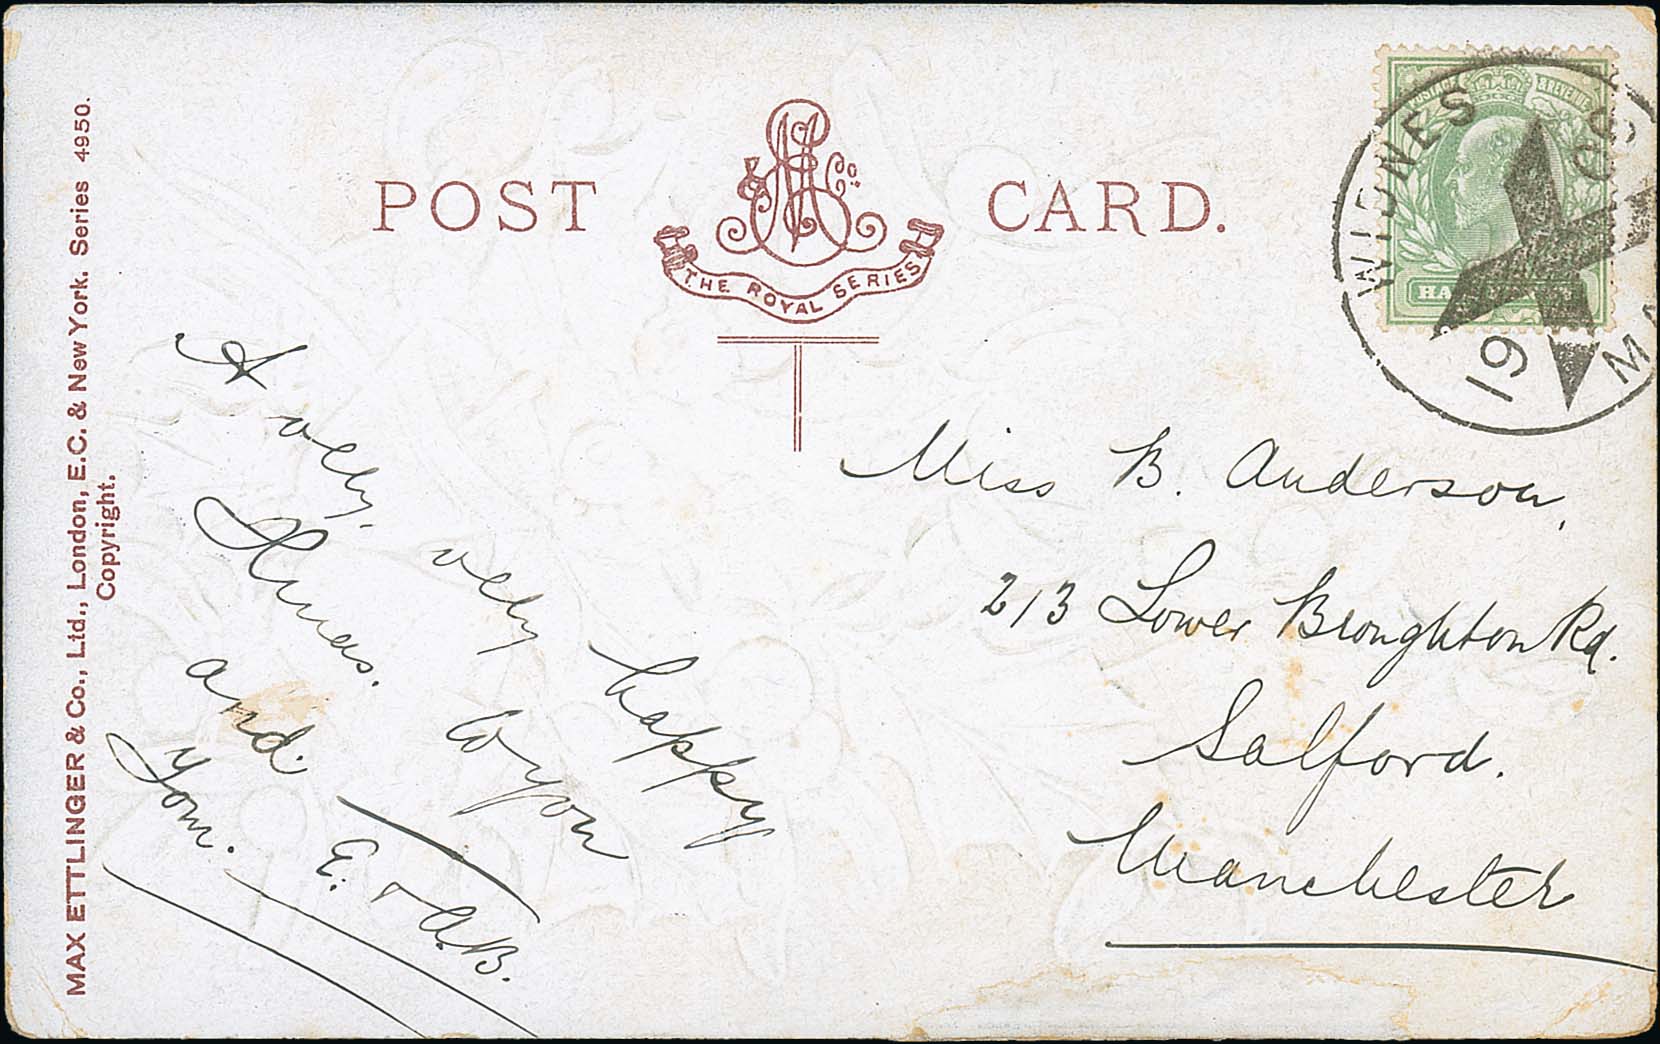 POST CARD.
& Co.
THE ROYAL SERIES
MAX ETTLINGER & Co., Ltd., London, E.C. & New York. Series 4950.
Copyright.
POSTAGE & REVENUE
WIDNES
19
A very, very happy
Xmas. to you
and
Yours.
E. & A.B.
Miss B. Anderson,
213 Lower Broughton Rd.
Salford.
Manchester